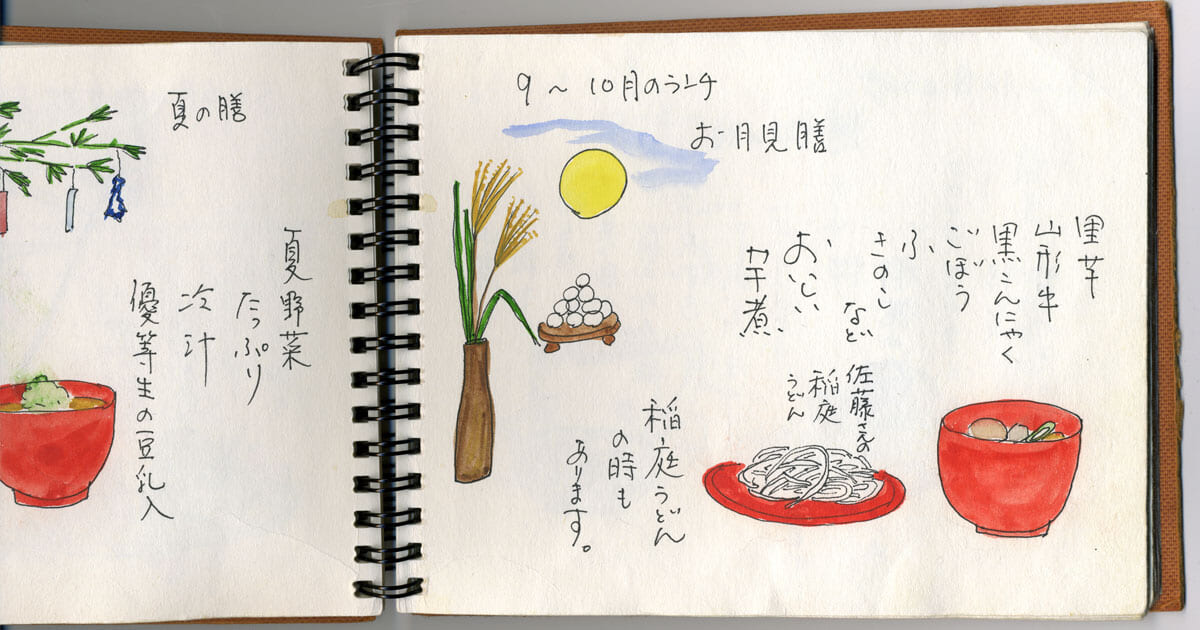 夏の膳
夏野菜
たっぷり
冷汁
優等生の豆乳入
9〜10月のランチ
お月見膳
里芋
山形牛
黒こんにゃく
ごぼう
ふ
きのこ
など
おいしい
芋煮
佐藤さんの
稲庭
うどん
稲庭うどん
の時も
あります。